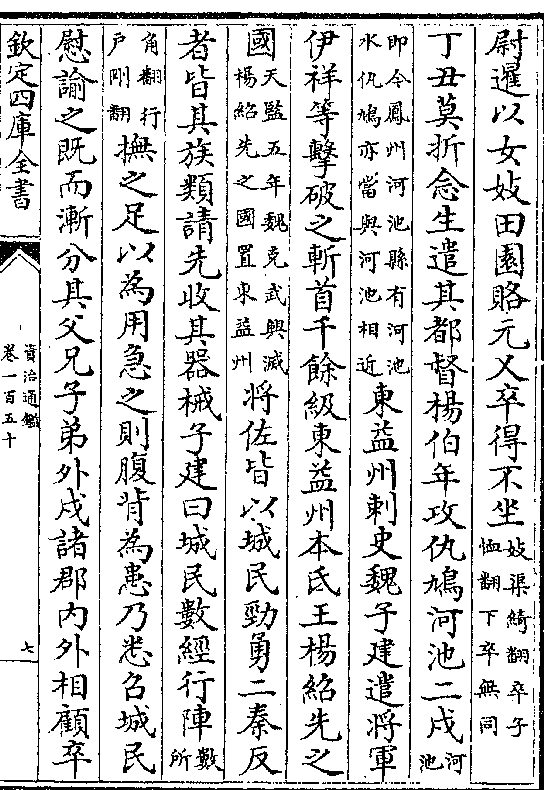 尉暹以女妓田園賂元乂卒得不坐妓渠綺翻卒子恤翻下卒無同
丁丑莫折念生遣其都督楊伯年攻仇鳩河池二戍河池
即今鳳州河池縣有河池水仇鳩亦當與河池相近東益州刺史魏子建遣將軍
伊祥等擊破之斬首千餘級東益州本氐王楊紹先之
國天監五年魏克武興滅楊紹先之國置東益州將佐皆以城民勁勇二秦反
者皆其族類請先收其器械子建曰城民數經行陣數所
角翻行戶剛翻撫之足以為用急之則腹背為患乃悉召城民
慰諭之既而漸分其父兄子弟外戍諸郡內外相顧卒
欽定四庫全書
資治通鑑
卷一百五十
七